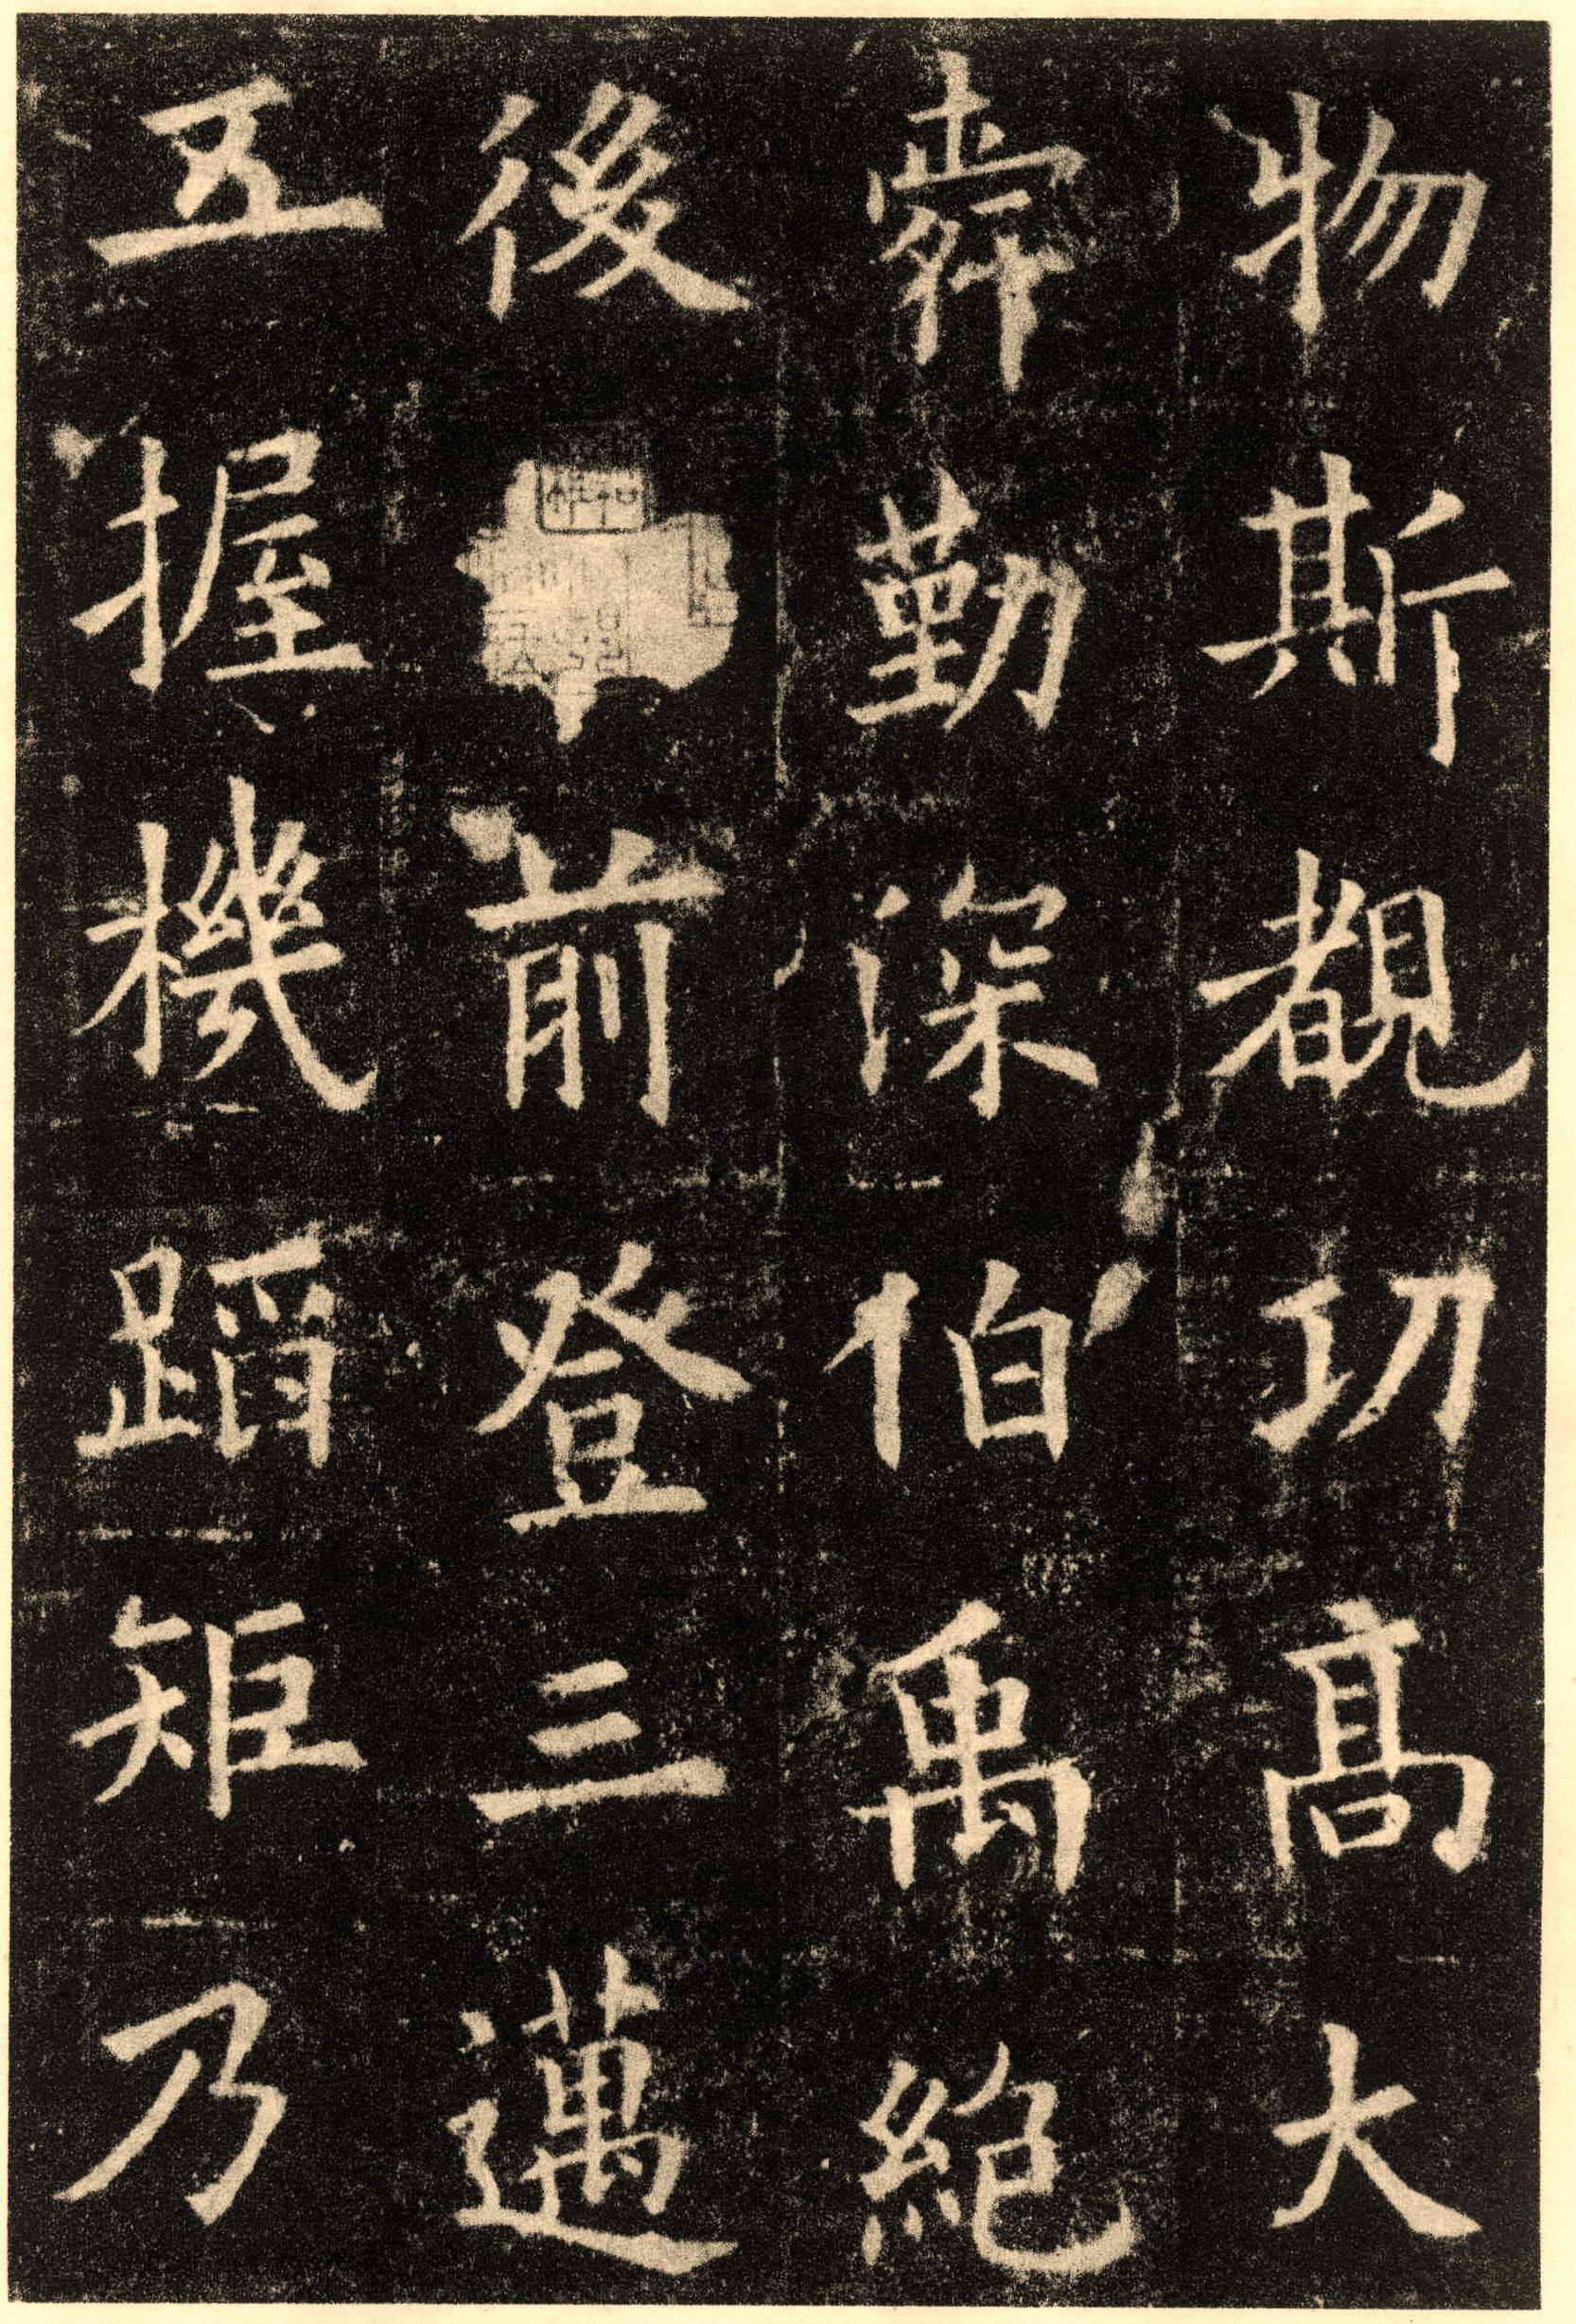 物斯覩功髙大
舜勤深伯禹絶
後前登三邁
五握機蹈矩乃